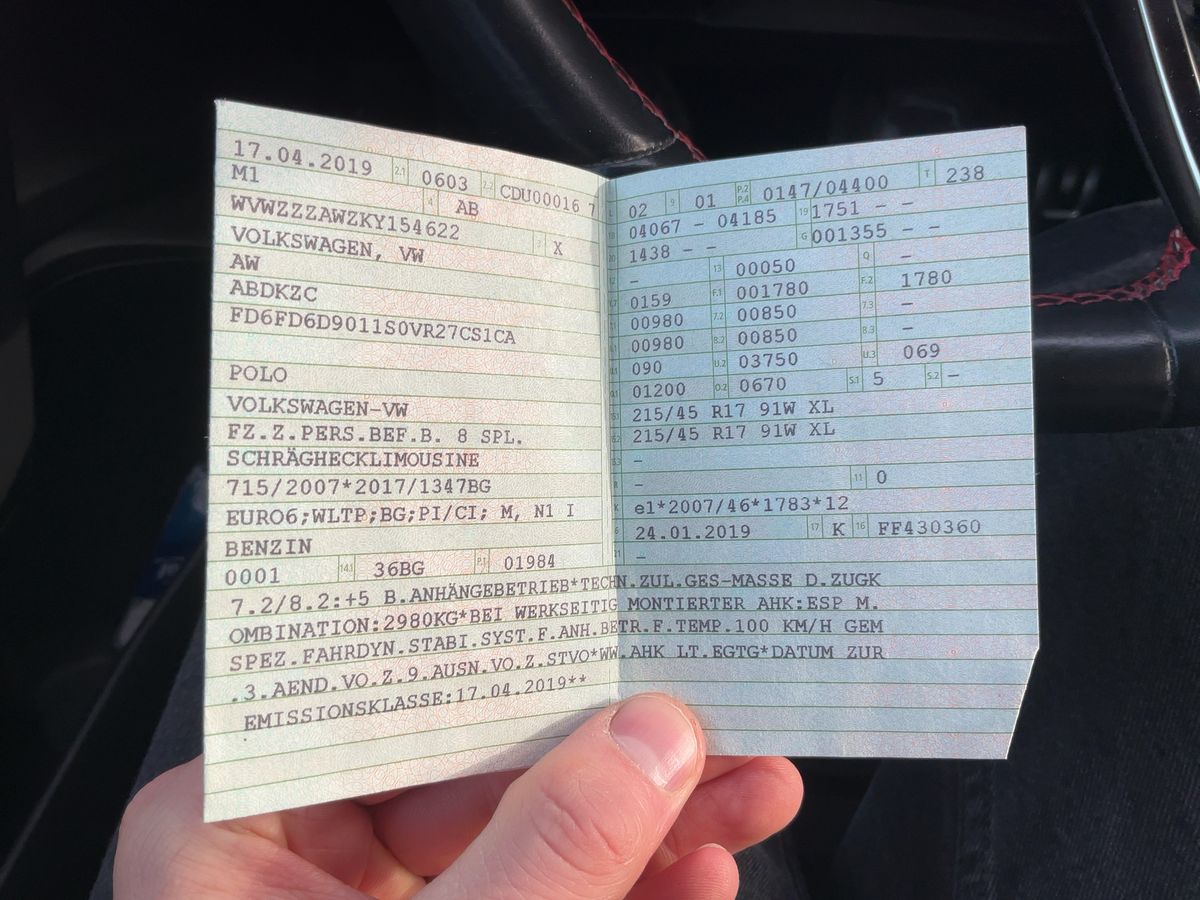 17.04.2019 2.1 0603 2.2 CDU00016 7
M1 4 AB
WVWZZZAWZKY154622 X
VOLKSWAGEN, VW
AW
ABDKZC
FD6FD6D9011S0VR27CS1CA
POLO
VOLKSWAGEN-VW
FZ.Z.PERS.BEF.B. 8 SPL.
SCHRÄGHECKLIMOUSINE
715/2007*2017/1347BG
EURO6;WLTP;BG;PI/CI; M, N1 I
BENZIN
0001 14.1 36BG P.1 01984
02 9 01 P.2 P.4 0147/04400 T 238
04067 - 04185 19 1751 - -
1438 - - G 001355 - -
- 13 00050 Q -
0159 F.1 001780 F.2 1780
00980 7.2 00850 7.3 -
00980 8.2 00850 8.3 -
090 U.2 03750 U.3 069
01200 O.2 0670 S.1 5 S.2 -
215/45 R17 91W XL
215/45 R17 91W XL
-
- 11 0
K e1*2007/46*1783*12
6 24.01.2019 17 K 16 FF430360
21 -
7.2/8.2:+5 B.ANHÄNGEBETRIEB*TECHN.ZUL.GES-MASSE D.ZUGK
OMBINATION:2980KG*BEI WERKSEITIG MONTIERTER AHK:ESP M.
SPEZ.FAHRDYN.STABI.SYST.F.ANH.BETR.F.TEMP.100 KM/H GEM
.3.AEND.VO.Z.9.AUSN.VO.Z.STVO*WW.AHK LT.EGTG*DATUM ZUR
EMISSIONSKLASSE:17.04.2019**